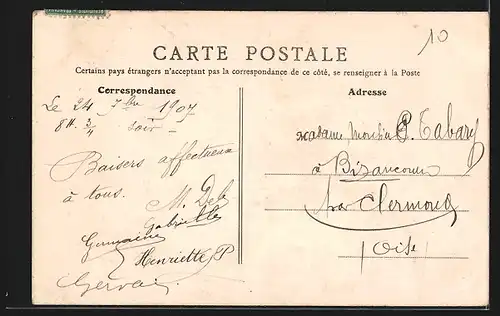 10
CARTE POSTALE
Certains pays étrangers n'acceptant pas la correspondance de ce côté, se renseigner à la Poste
Correspondance
Le 24 7bre 1907
8H. 3/4 soir -
Baisers affectueux
à tous.
M. Deb
Gabrielle
Germaine
Henriette P
Gervais
Adresse
Madame E. Tabary
à Bizancourt
par Clermont
Oise